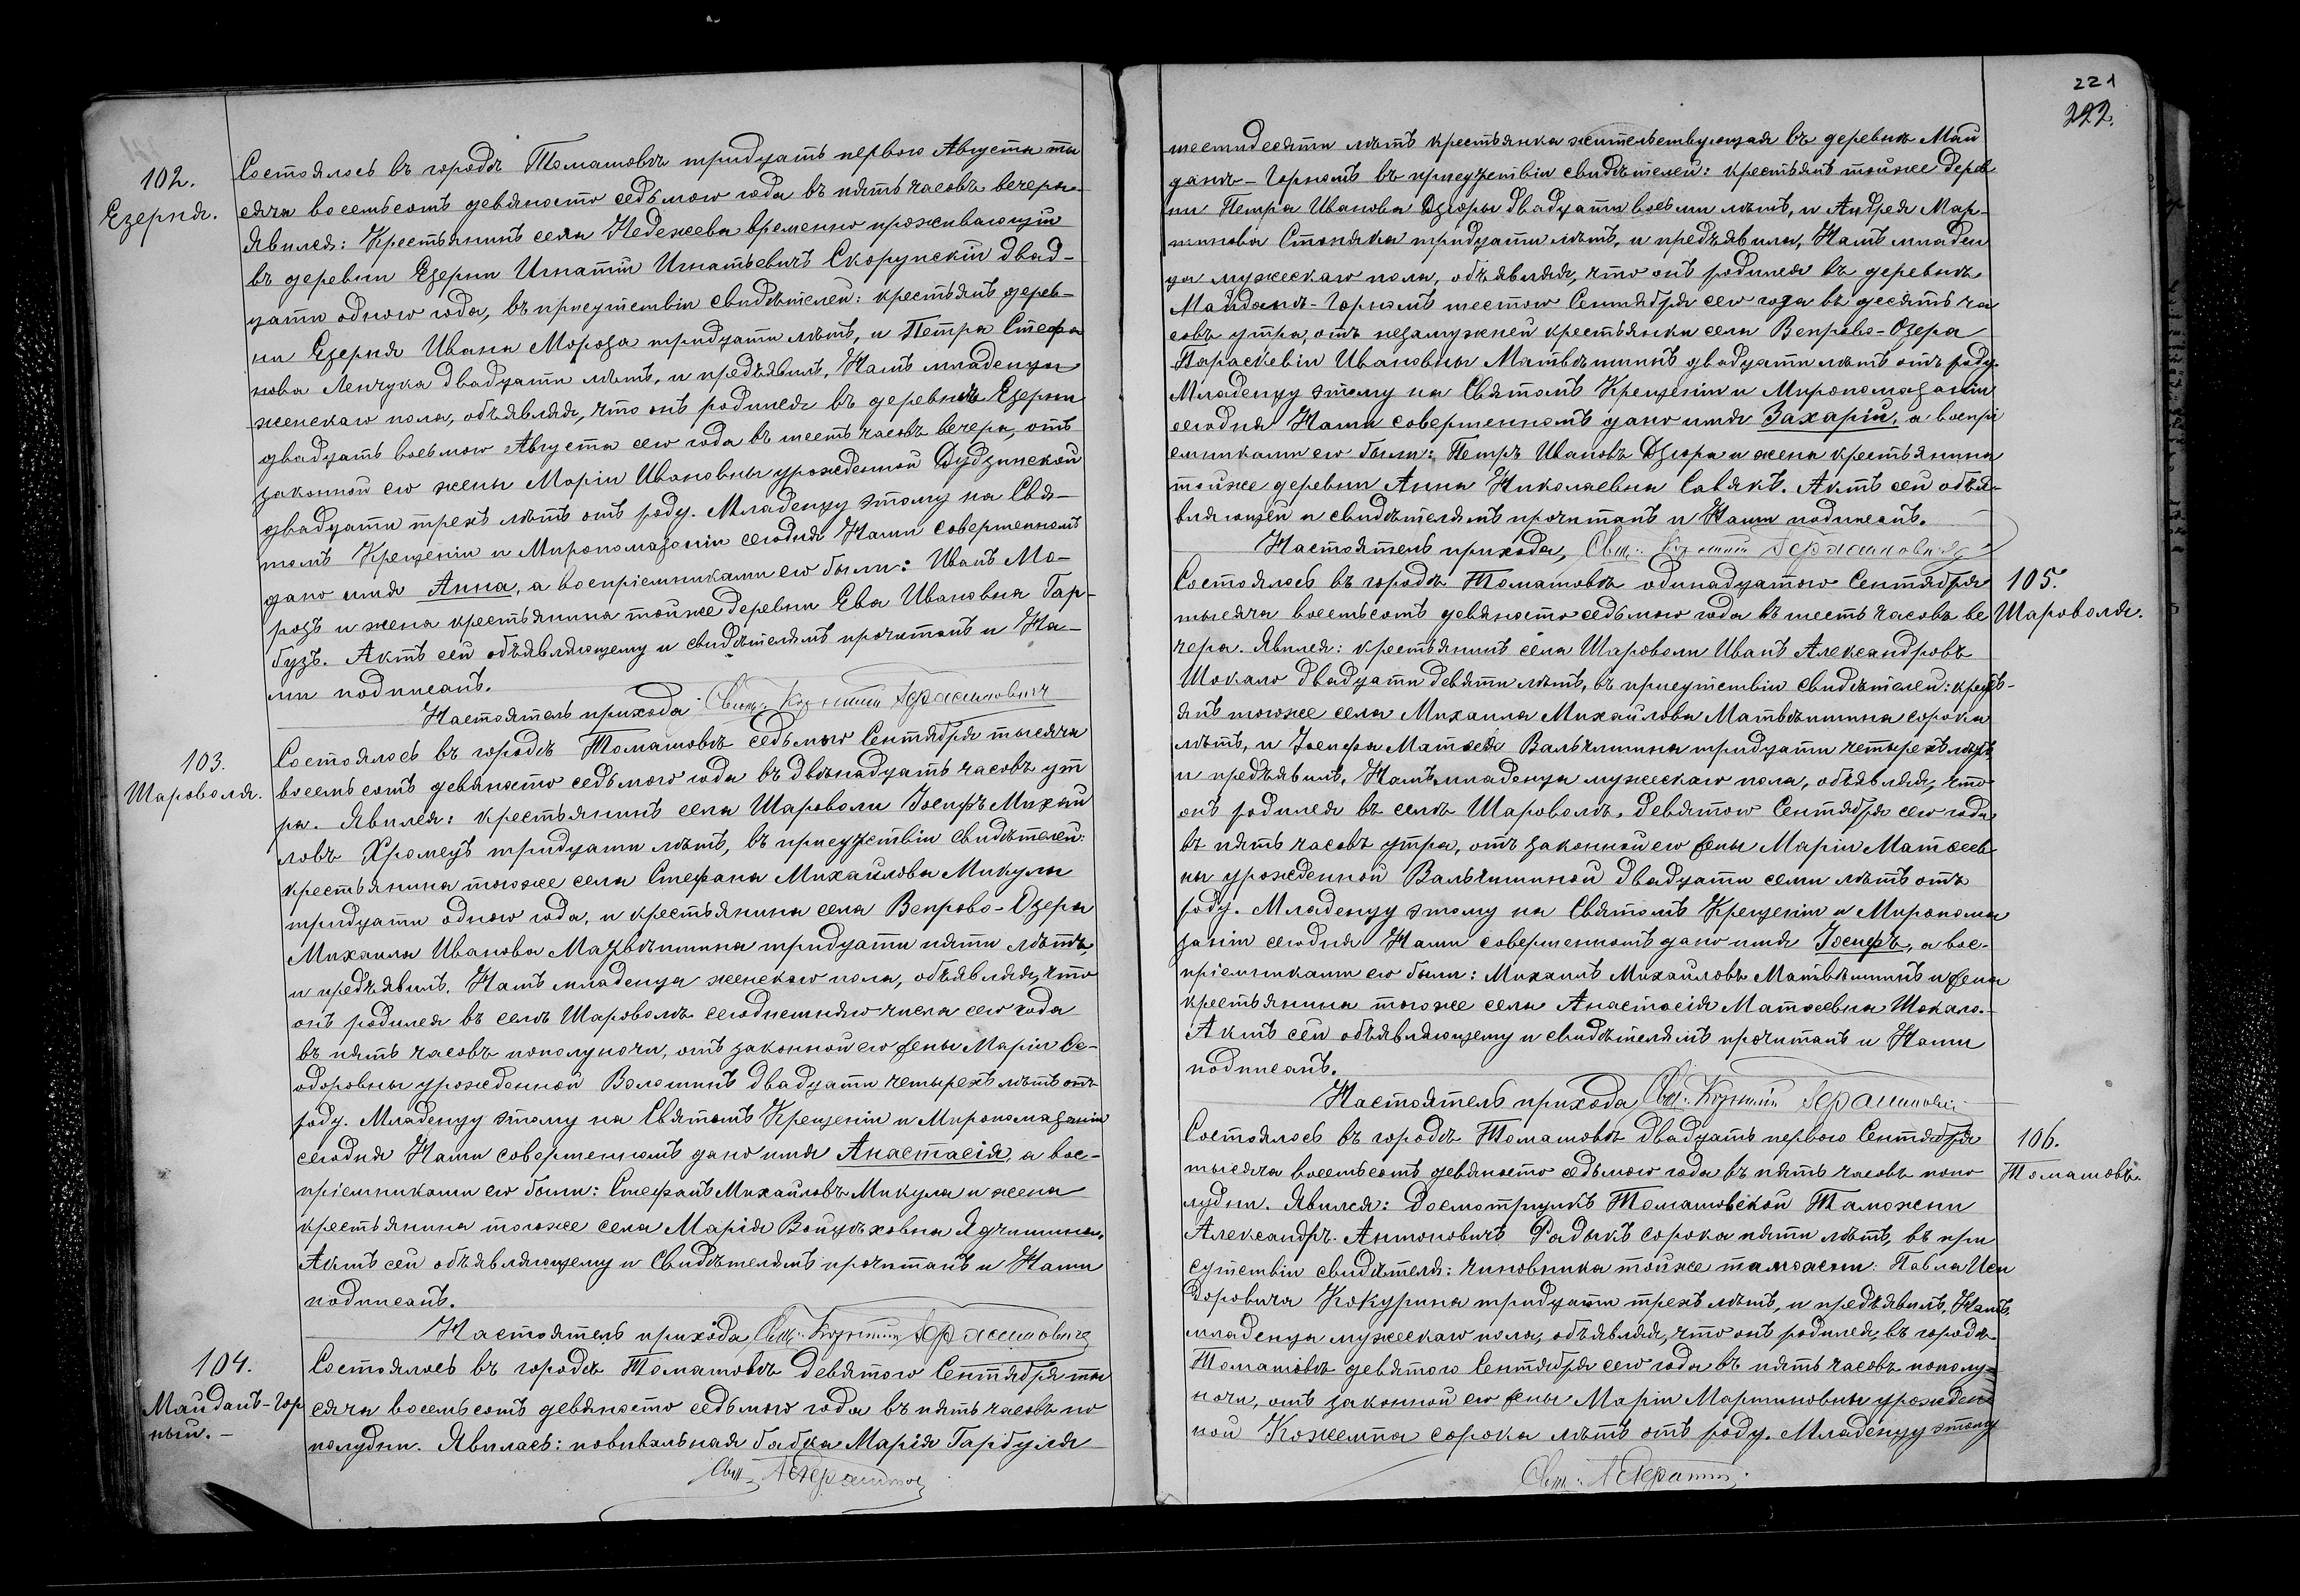 102.
Езерня.
Состоялось въ городѣ Томашовѣ тридцать перваго Августа ты
сяча восемьсотъ девяносто седьмого года въ пять часовъ вечера
Явился: Крестьянинъ села Недежева временно проживающій
въ деревни Езерни Игнатій Игнатьевичъ Скорупскій двад-
цати одного года, въ присутствіи свидѣтелей: крестьянъ дерев-
ни Езерня Ивана Мороза тридцати лѣтъ, и Петра Стефа
нова Ленчука двадцати лѣтъ, и предъявилъ, Намъ младенца
женскаго пола, объявляя, что онъ родился въ деревнѣ Езерни
двадцать восьмого Августа сего года въ шесть часовъ вечера, отъ
законной его жены Маріи Ивановны урожденной Дудзинской
двадцати трехъ лѣтъ отъ роду. Младенцу этому на Свя-
томъ Крещеніи и Миропомазаніи сегодня Нами совершенномъ
дано имя Анна, а воспріемниками его были: Иванъ Мо-
розъ и жена крестьянина тойже деревни Ева Ивановна Гар-
бузъ. Актъ сей объявляющему и свидѣтелямъ прочитанъ и На-
ми подписанъ.
Настоятель прихода Свящ.
103.
Шароволя.
Состоялось въ городѣ Томашовѣ седьмого Сентября тысяча
восемьсотъ девяносто седьмого года въ двѣнадцать часовъ ут
ра. Явился: крестьянинъ села Шароволи Іосифъ Михай
ловъ Хромецъ тридцати лѣтъ, въ присутствіи свидѣтелей:
крестьянина тогоже села Стефана Михайлова Микулы
тридцати одного года, и крестьянина села Вепрово-Озера
Михаила Иванова Матвѣишина тридцати пяти лѣтъ,
и предъявилъ, Намъ младенца женскаго пола, объявляя, что
онъ родился въ селѣ Шароволѣ сегоднешняго числа сего года
въ пять часовъ пополуночи, отъ законной его жены Маріи Ѳе-
одоровны урожденной Волошинъ двадцати четырехъ лѣтъ отъ
роду. Младенцу этому на Святомъ Крещеніи и Миропомазаніи
сегодня Нами совершенномъ дано имя Анастасія, а вос-
пріемниками его были: Стефанъ Михайловъ Микула и жена
крестьянина тогоже села Марія Войцѣховна Ядчишина.
Актъ сей объявляющему и Свидѣтелямъ прочитанъ и Нами
подписанъ.
Настоятель прихода Свящ.
104.
Майданъ-Гор
ный.-
Состоялось въ городѣ Томашовѣ девятого Сентября ты
сяча восемьсотъ девяносто седьмого года въ пять часовъ по
полудни. Явилась: повивальная бабка Марія Гарбуля
221
222.
шестидесяти лѣтъ крестьянка жительствующая въ деревнѣ Май
данѣ-Горномъ въ присутствіи свидѣтелей: крестьянъ тойже дерев
ни Петра Иванова Дзюры двадцати восьми лѣтъ, и Андрея Мар-
тинова Стоняка тридцати лѣтъ, и предъявила, Намъ младен
ца мужескаго пола, объявляя, что онъ родился въ деревнѣ
Майданѣ-Горномъ шестого Сентября сего года въ десять ча
совъ утра, отъ незамужней крестьянки села Вепрово-Озера
Параскевіи Ивановны Матвѣишинъ двадцати лѣтъ отъ роду.
Младенцу этому на Святомъ Крещеніи и Миропомазаніи
сегодня Нами совершенномъ дано имя Захарій, а воспрі
емниками его были: Петръ Ивановъ Дзюра и жена крестьянина
тойже деревни Анна Николаевна Савякъ. Актъ сей объя-
вляющей и свидѣтелямъ прочитанъ и Нами подписанъ.
Настоятель прихода, Свящ.
105.
Шароволя.
Состоялось въ городѣ Томашовѣ одинадцатого Сентября
тысяча восемьсотъ девяносто седьмого года въ шесть часовъ ве
чера. Явился: крестьянинъ села Шароволи Иванъ Александровъ
Шокало двадцати девяти лѣтъ, въ присутствіи свидѣтелей: кресть-
янъ тогоже села Михаила Михайлова Матвѣишина сорока
лѣтъ, и Іосифа Матѳея Вальчишина тридцати четырехъ лѣтъ,
и предъявилъ, Намъ младенца мужескаго пола, объявляя, что
онъ родился въ селѣ Шароволѣ, девятого Сентября сего года
въ пять часовъ утра, отъ законной его жены Маріи Матѳеев
ны урожденной Вальчишиной двадцати семи лѣтъ отъ
роду. Младенцу этому на Святомъ Крещеніи и Миропома
заніи сегодня Нами совершенномъ дано имя Іосифъ, а вос-
пріемниками его были: Михаилъ Михайловъ Матвѣишинъ и жена
крестьянина тогоже села Анастасія Матѳеевна Шокало.
Актъ сей объявляющему и свидѣтелямъ прочитанъ и Нами
подписанъ.
Настоятель прихода Свящ.
106.
Томашовъ.
Состоялось въ городѣ Томашовѣ двадцать перваго Сентября
тысяча восемьсотъ девяносто седьмого года въ пять часовъ попо
лудни. Явился: досмотрщикъ Томашовской Таможни
Александръ Антоновичъ Радыкъ сорока пяти лѣтъ, въ при
сутствіи свидѣтеля: чиновника тойже таможни: Павла Иси
доровича Кокурина тридцати трехъ лѣтъ, и предъявилъ, Намъ,
младенца мужескаго пола, объявляя, что онъ родился, въ городѣ
Томашовѣ девятого Сентября сего года въ пять часовъ пополу-
ночи, отъ законной его жены Маріи Мартиновны урожден
ной Кожемпа сорока лѣтъ отъ роду. Младенцу этому